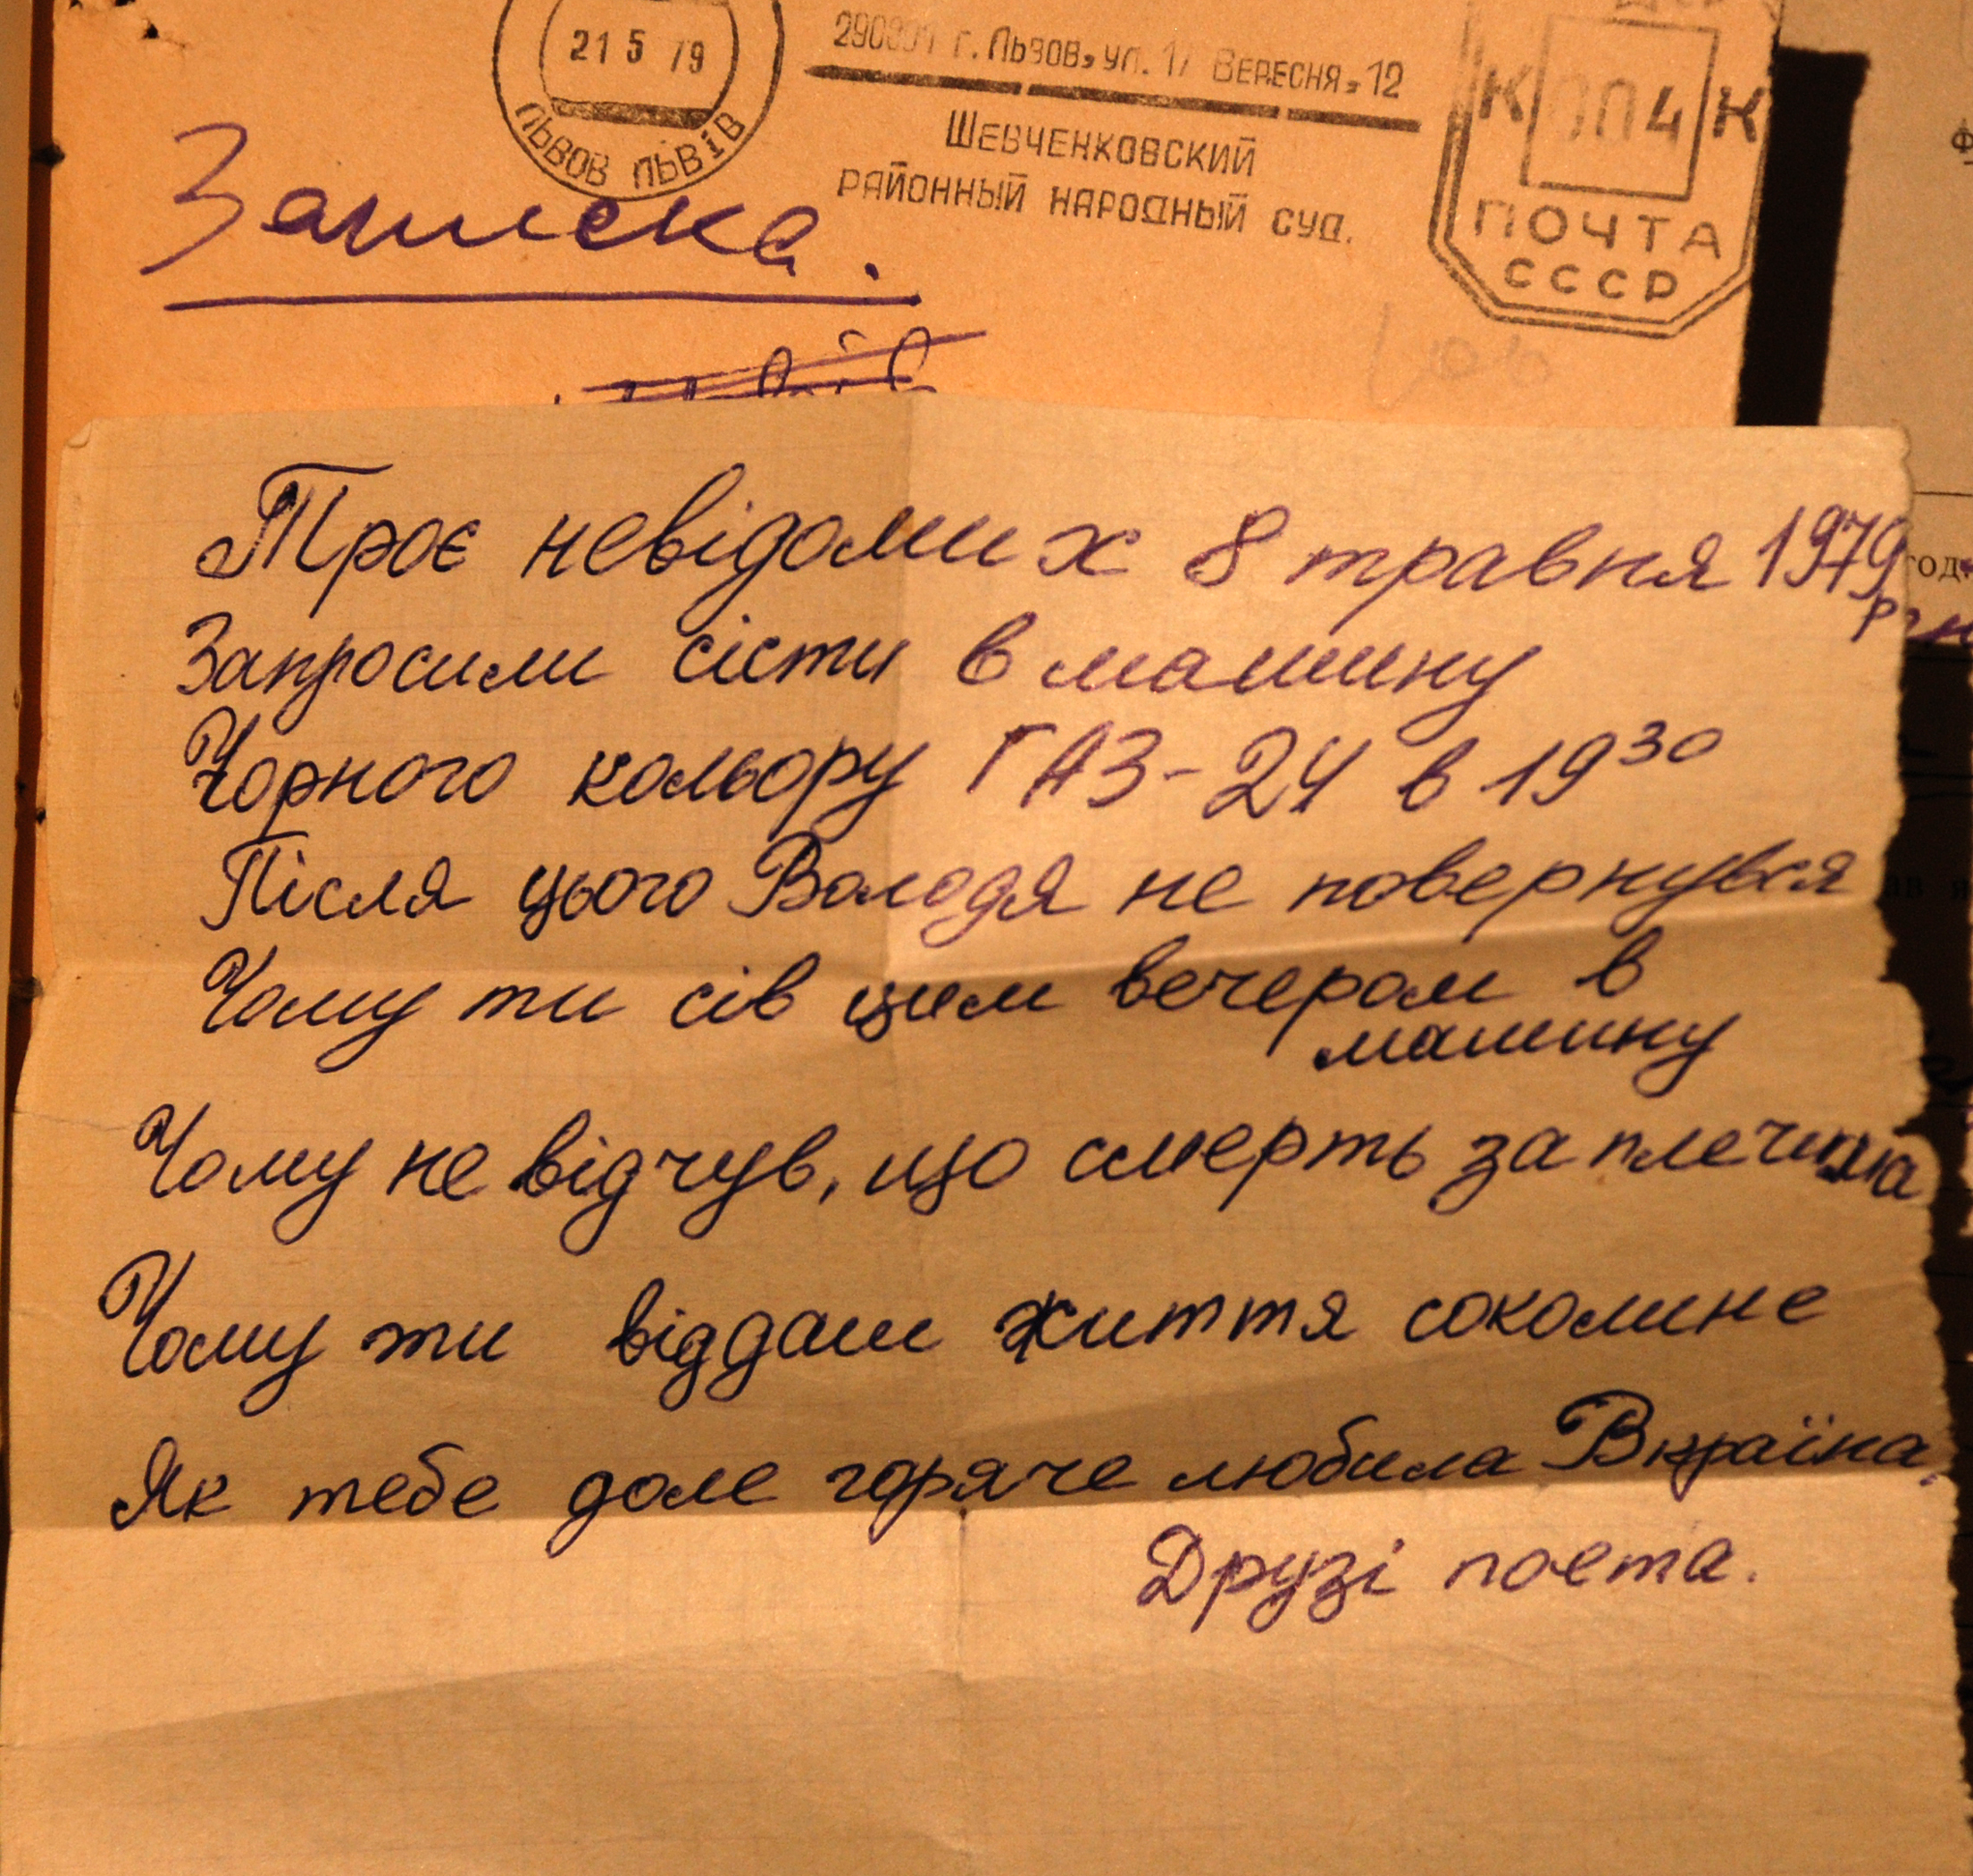 21 5 79
ЛЬВОВ ЛЬВІВ
г. Львов, ул. 17 Вересня, 12
Шевченковский
районный народный суд.
К 004 К
ПОЧТА
СССР
Записка.
Троє невідомих 8 травня 1979
Запросили сісти в машину
Чорного кольору ГАЗ-24 в 19 30
Після цього Володя не повернувся
Чому ти сів цим вечером в
машину
Чому не відчув, що смерть за плечима
Чому ти віддаш життя соколине
Як тебе доле горяче любила Вкраїна.
Друзі поета.
год.